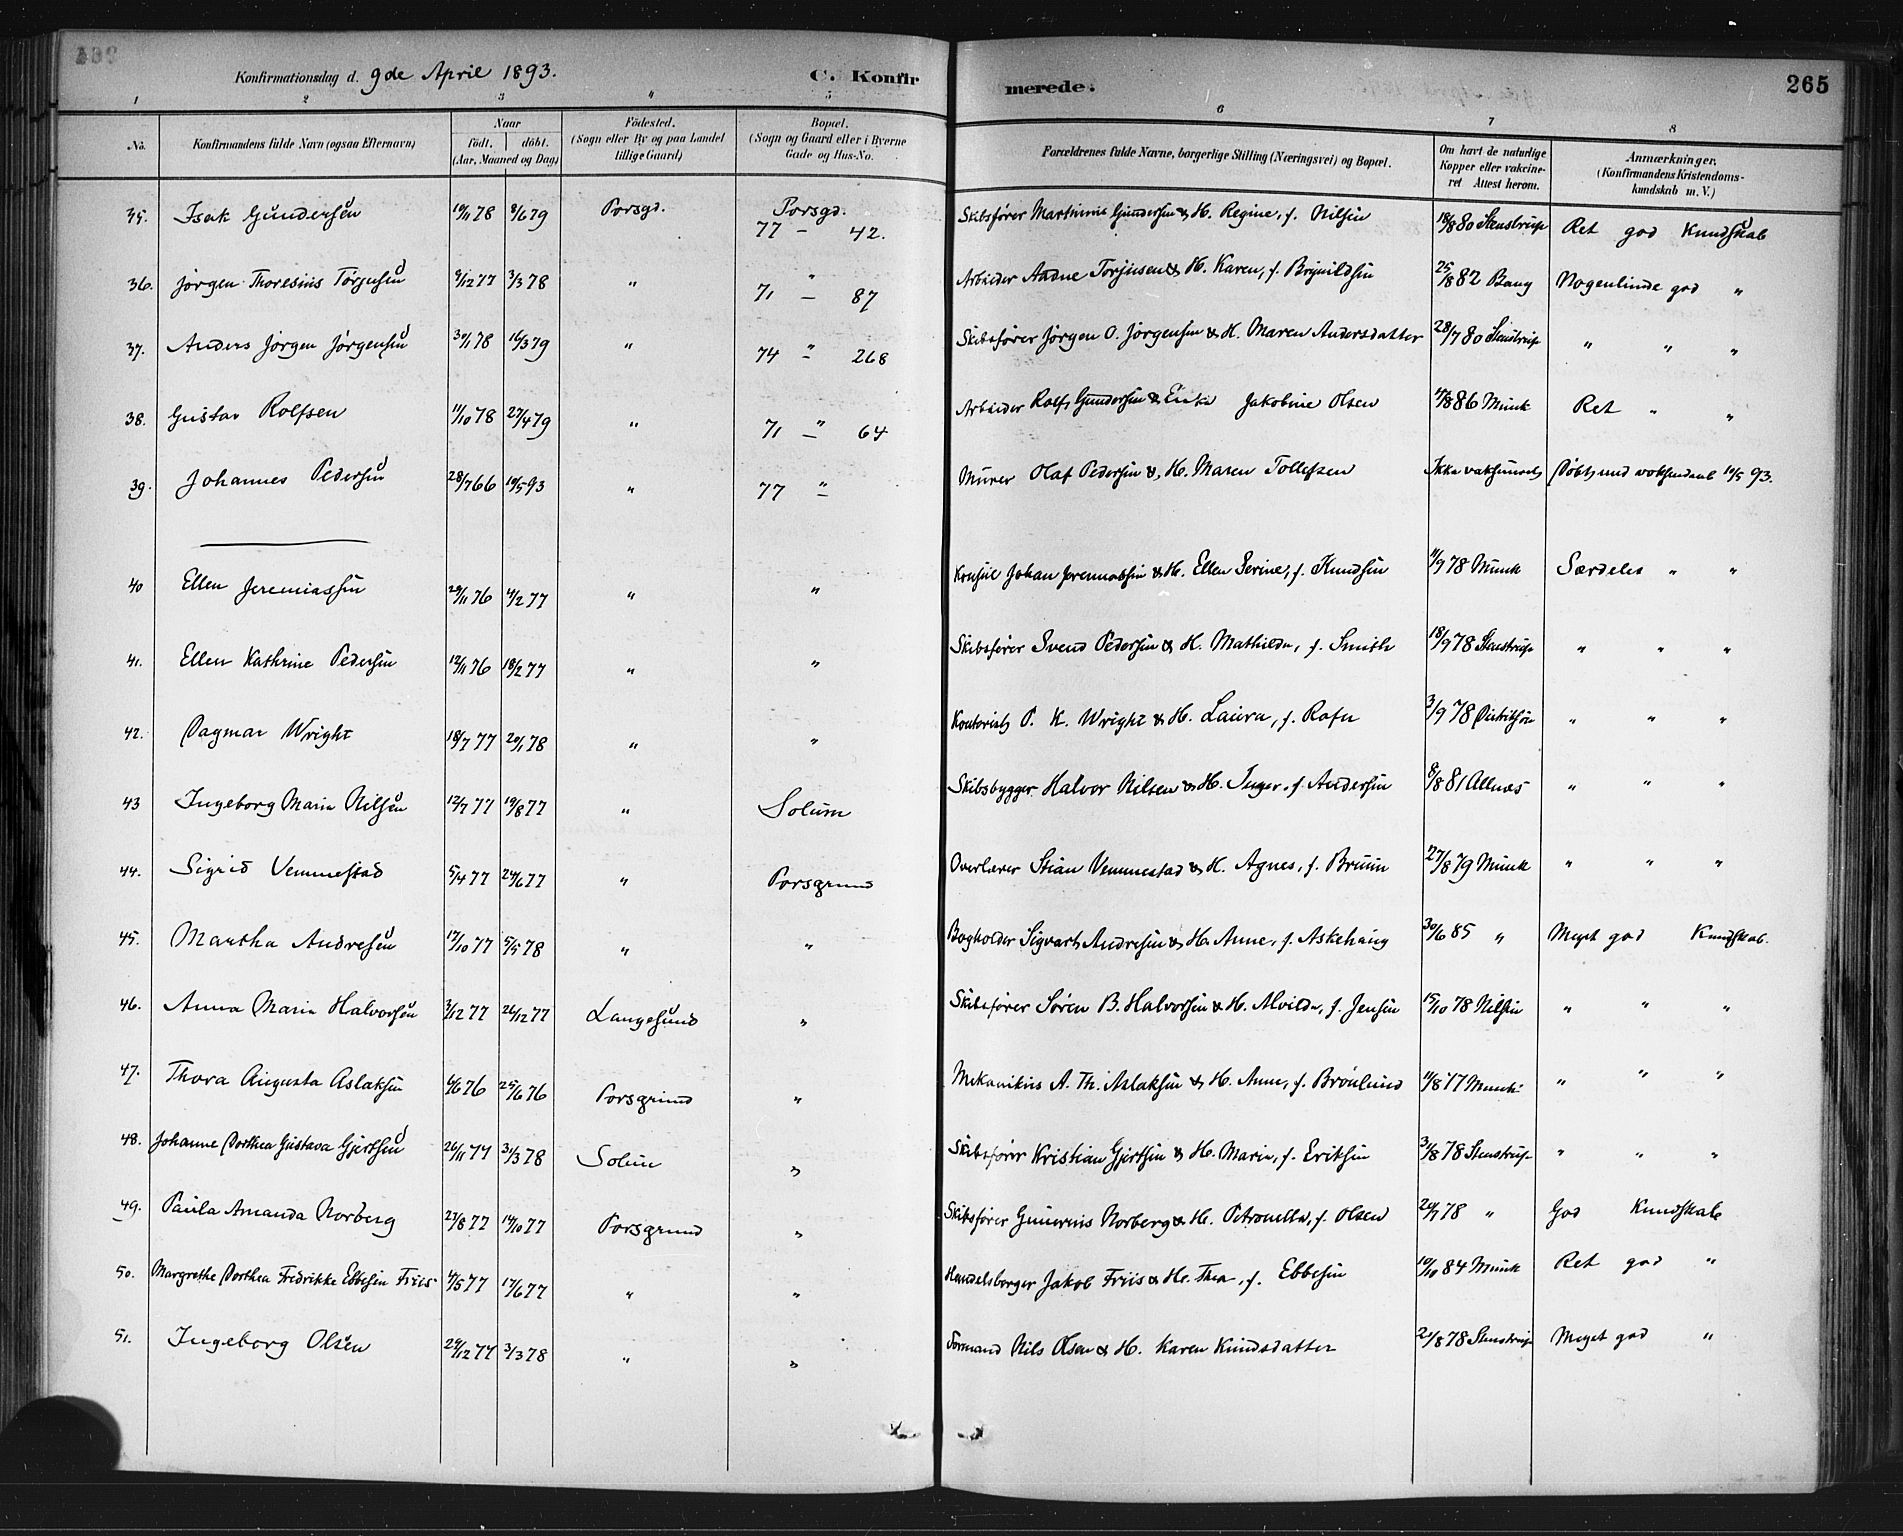 265
Konfirmationsdag d. 9de April 1893. C. Konfirmerede.
1 2 3 4 5 6 7 8
No. Konfirmandens fulde Navn (ogsaa Efternavn) Naar födt. döbt. (Aar, Maaned og Dag) Födested. (Sogn eller By og paa Landet tillige Gaard) Bopæl. (Sogn og Gaard eller i Byerne Gade og Hus-No. Forældrenes fulde Navne, borgerlige Stilling (Næringsvei) og Bopæl. Om havt de naturlige Kopper eller vakcineret Attest herom. Anmærkninger. (Konfirmandens Kristendomskundskab m. V.)
35. Isak Gundersen 10/11 78 8/6 79 Porsgd. Porsgd. 77 – 42. Skibsfører Martinius Gundersen & H. Regine, f. Nilsen 18/8 80 Stenstrup Ret god Kundskab
36. Jørgen Thoresius Törjusen 9/12 77 3/3 78 " " 71 – 87 Arbeider Aadne Torjusen & H. Karen, f. Bojnildsen 25/8 82 Bang Nogenlunde god "
37. Anders Jørgen Jørgensen 30/1 78 16/3 79 " 74 " 268 Skibsfører Jørgen O. Jørgensen & H. Maren Andersdatter 28/7 80 Stenstrup " " "
38. Gustav Rolfsen 11/10 78 27/4 79 " 71 " 64 Arbeider Rolf Gundersen & Enke Jakobine Olsen 17/8 86 Munk Ret " "
39. Johannes Pedersen 28/7 66 10/5 93 " 77 " Murer Olaf Pedersen & H. Maren Tollefsen Ikke vaksineret Döbt ved voksendaab 10/5 93.
40 Ellen Jeremiassen 20/11 76 4/2 77 " " Konsul Johan Jeremiassen & H. Ellen Serine, f. Knudsen 11/9 78 Munk Særdeles " "
41. Ellen Kathrine Pedersen 12/11 76 18/2 77 " " Skibsfører Svend Pedersen & H. Mathilde, f. Smith 18/9 78 Stenstrup " " "
42. Dagmar Wright 18/7 77 20/1 78 " " Kontorist P. K. Wright & H. Laura, f. Rafn 3/9 78 " " "
43 Ingeborg Marie Nilsen 12/7 77 19/8 77 " Solum Skibsbygger Halvor Nilsen & H. Inger, f. Andersen 8/8 81 Allnæs " " "
44. Sigrid Vemmestad 5/4 77 24/6 77 " Porsgrund Overlærer Stian Vemmestad & H. Agnes, f. Bruun 27/8 79 Munk " " "
45. Martha Andresen 17/10 77 5/5 78 " " Bogholder Sigvart Andresen & H. Anne, f. Askehaug 30/6 85 " Meget god Kundskab.
46. Anna Marie Halvorsen 3/12 77 26/12 77 Langesund " Skibsfører Søren B. Halvorsen & H. Alvilde, f. Jensen 15/10 78 Nilsen " " "
47. Thora Augusta Aslaksen 4/6 76 25/6 76 Porsgrund " Mekanikus A. Th. Aslaksen & H. Anne, f. Brönlund 11/8 77 Munk " " "
48. Johanne Dorthea Gustava Gjertsen 26/11 77 31/3 78 Solum " Skibsfører Kristian Gjertsen & H. Marie, f. Eriksen 31/8 78 Stenstrup " " "
49. Paula Amanda Norberg 27/8 77 14/10 77 Porsgrund " Skibsfører Gunerius Norberg & H. Petronelle, f. Olsen 26/7 78 " God Kundskab
50. Margrethe Dorthea Fredrikke Ebbesen Friis 4/5 77 17/6 77 " " Handelsborger Jakob Friis & H. Thea, f. Ebbesen 10/10 84 Munk Ret god "
51. Ingeborg Olsen 29/12 77 3/3 78 " " Formand Nils Olsen & H. Karen Knudsdatter 21/8 78 Stenstrup Meget god "